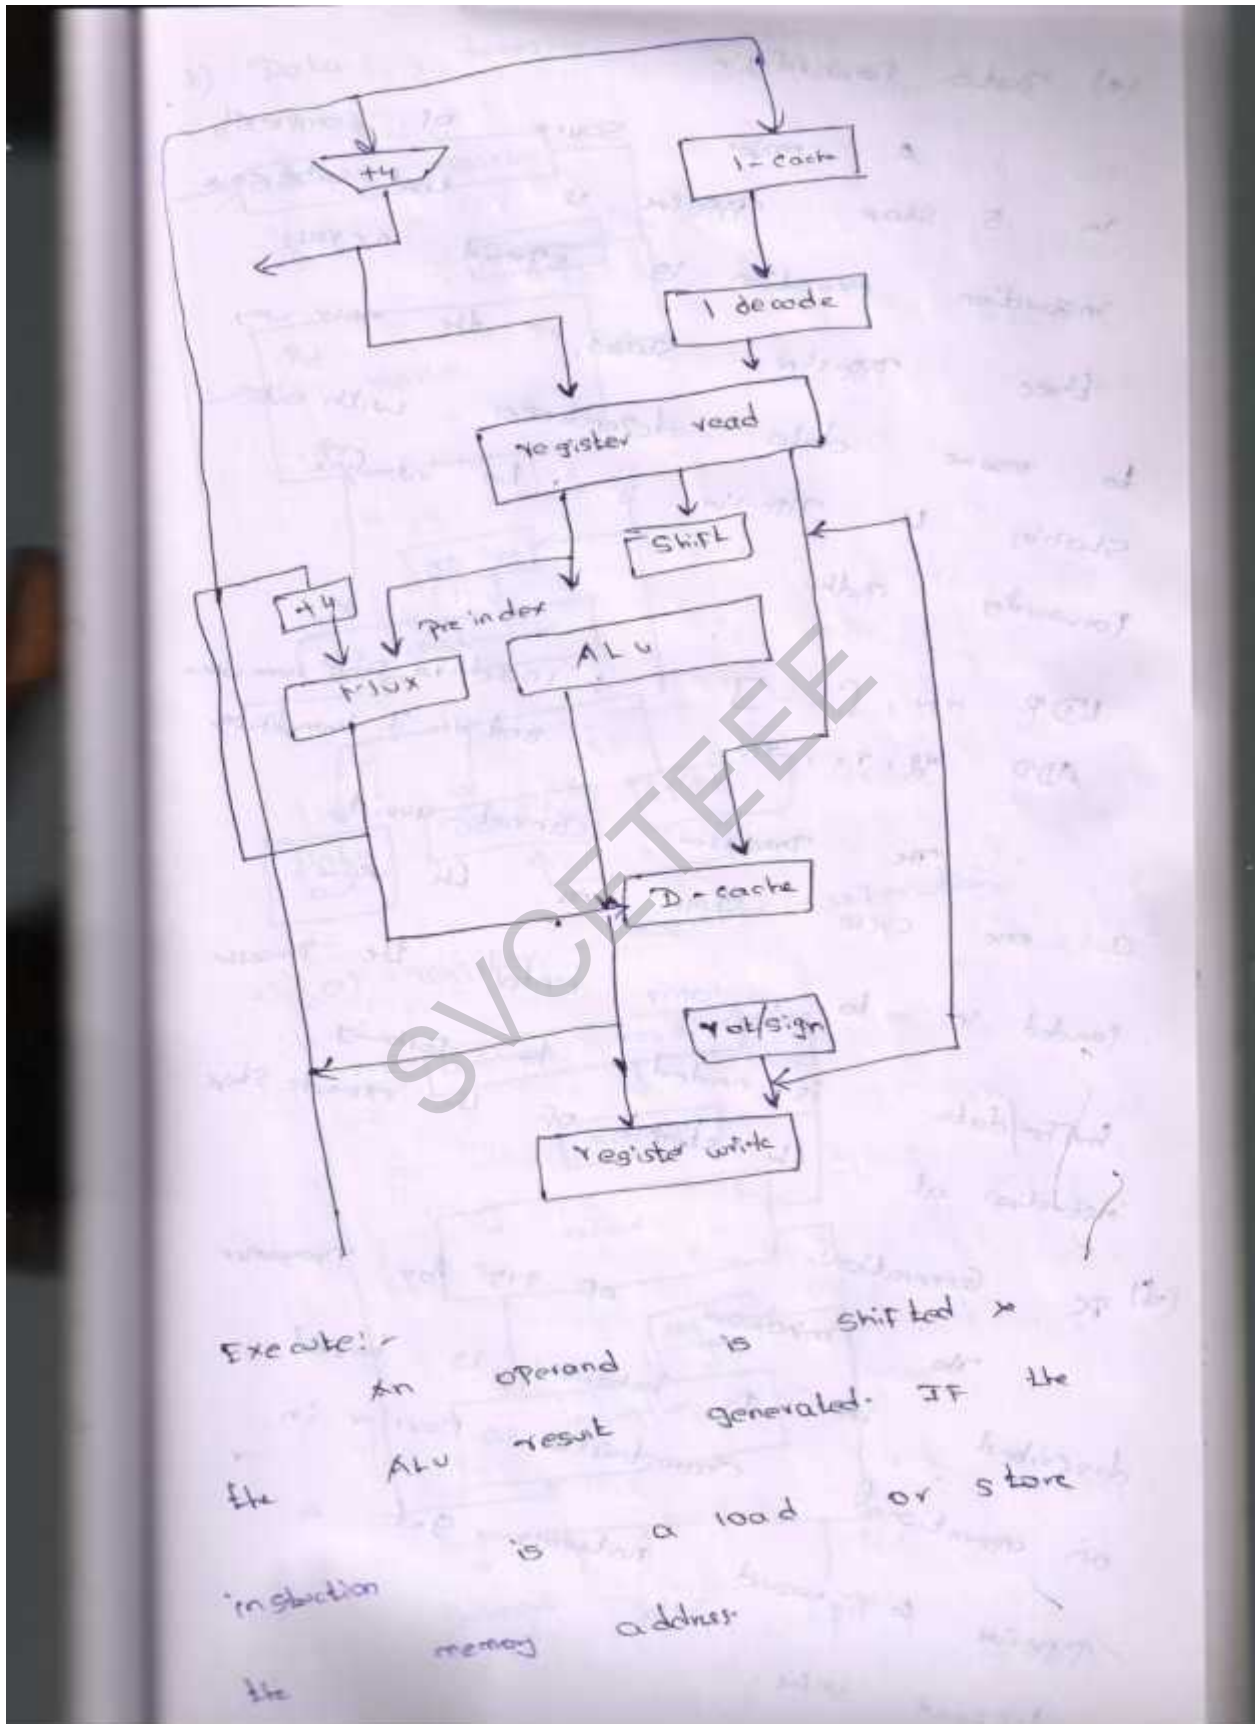 +4
I - cache
I decode
register read
Shift
+4
pre index
ALU
Mux
D - cache
rot/sign
register write
SVCETEEE
Execute:-
An operand is shifted &
the ALU result generated. If the
instuction is a load or store
the memory address.